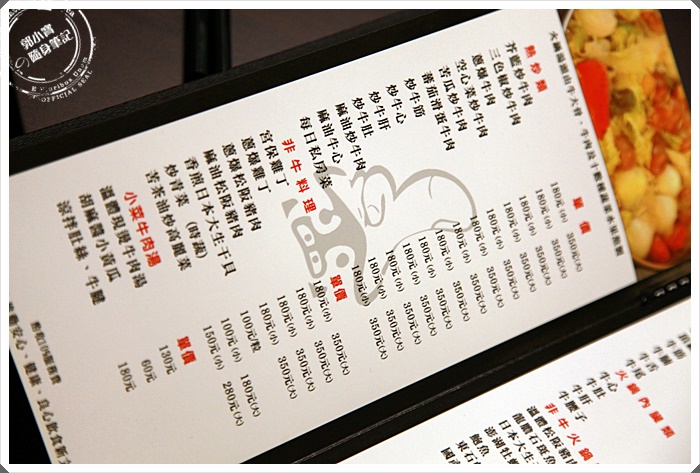 郭小寶
の隨身筆記
熱炒類 單價
芥藍炒牛肉 180元(小) 350元(大)
三色椒炒牛肉 180元(小) 350元(大)
蔥爆牛肉 180元(小) 350元(大)
空心菜炒牛肉 180元(小) 350元(大)
苦瓜炒牛肉 180元(小) 350元(大)
蕃茄滑蛋牛肉 180元(小) 350元(大)
炒牛筋 180元(小) 350元(大)
炒牛心 180元(小) 350元(大)
炒牛肝 180元(小) 350元(大)
炒牛肚 180元(小) 350元(大)
麻油炒牛肉 180元(小) 350元(大)
麻油牛心 180元(小) 350元(大)
每日私房菜
非牛料理 單價
宮保雞丁 180元(小) 350元(大)
蔥爆雞丁 180元(小) 350元(大)
蔥爆松阪豬肉 180元(小) 350元(大)
麻油松阪豬肉 180元(小) 350元(大)
香煎日本大生干貝 100元/粒
炒青菜（時蔬） 100元(小) 180元(大)
苦茶油炒高麗菜 150元(小) 280元(大)
小菜牛肉湯 單價
溫體現燙牛肉湯 130元
胡麻醬小黃瓜 60元
涼拌肚絲、牛腱 180元
火鍋內臟類
牛心
牛肚
牛肝
牛腰子
非牛火鍋
溫體松阪豬
龍膽石斑魚
日本大生
鮑魚